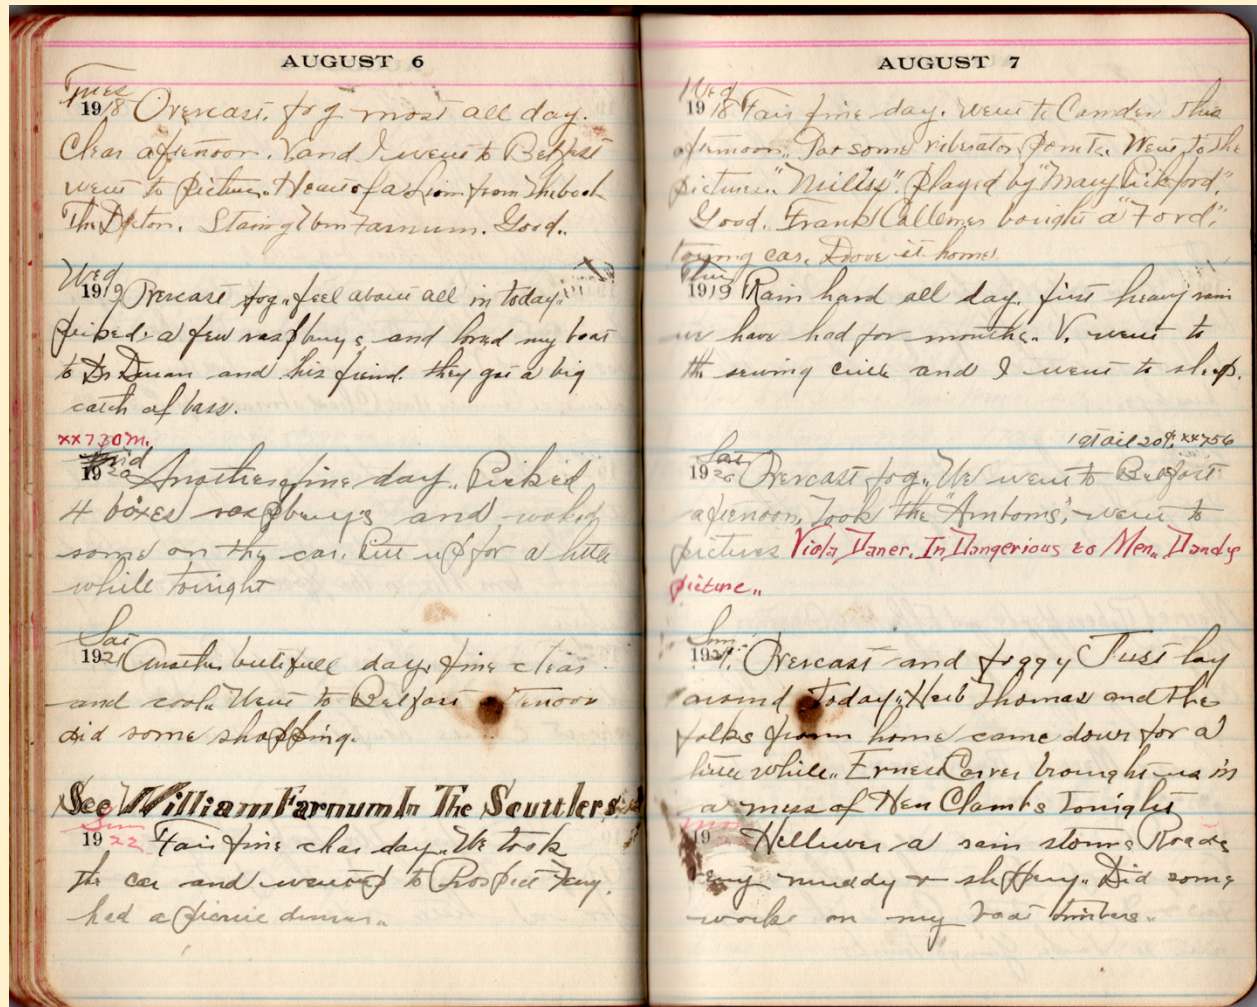 AUGUST 6
Tues
1918 Overcast. fog most all day.
Clear afternoon. V and I went to Belfast
went to pictures. Heart of a Lion from the book
The Doctor. Staring Wm Farnum. Good..
Wed
1919 Overcast fog.. feel about all in today.
picked a few raspburys and loned my boat
to Dr and his friend. they got a big
catch of bass.
xx730m.
Frid
1920 Another fine day.. Picked
4 boxes raspburys and
some on the car. Put up for a little
while tonight
Sat
1921 Another butifull day. fine clear
and cool. Went to Belfast afternoon
did some shopping.
See William Farnum In The Scuttlers
Sun
1922 Fair fine clear day.. We took
the car and went up to Prospect Fery.
had a picnic dinner..
AUGUST 7
Wed
1918 Fair fine day. Went to Camden this
afternoon.. some viberator points. Went to the
pictures.. played by "Mary Pickford."
Good.. Frank bought a "Ford"
touring car. Drove it home
Thu
1919 Rain hard all day. first heavy rain
we have had for months. V. went to
the sewing circle and I went to sleep.
1 qt oil 20¢. xx756
Sat
1920 Overcast fog.. We went to Belfast
afternoon. Took the went to
pictures Viola Daner. In Dangerious to Men.. Dandy
picture..
Sun
1921. Overcast and foggy Just lay
around today.. Herb Thomas and the
folks from home came down for a
little while.. Ernest Carver brought us in
a mess of Hen Clambs tonight
Mon
19 Helluver a rain storm. Roads
very muddy & slippery.. Did some
work on my boat timbers..